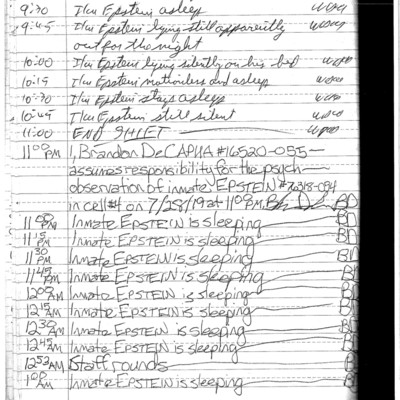 9:30 I/m Epstein asleep
9:45 I/m Epstein lying still apparently
out for the night
10:00 I/m Epstein lying silently on his bed
10:15 I/m Epstein motionless and asleep
10:30 I/m Epstein stays asleep
10:45 I/m Epstein still silent
11:00 END SHIFT
11:00 PM I, Brandon DeCAPUA #16520-055
assumes responsibility for the psych
observation of inmate EPSTEIN #76318-054
in cell #1 on 7/28/19 at 11:00 P.M.
11:00 PM Inmate EPSTEIN is sleeping BD
11:15 PM Inmate EPSTEIN is sleeping BD
11:30 PM Inmate EPSTEIN is sleeping BD
11:45 PM Inmate EPSTEIN is sleeping BD
12:00 AM Inmate EPSTEIN is sleeping BD
12:15 AM Inmate EPSTEIN is sleeping BD
12:30 AM Inmate EPSTEIN is sleeping BD
12:45 AM Inmate EPSTEIN is sleeping BD
12:52 AM Staff rounds BD
1:00 AM Inmate EPSTEIN is sleeping BD